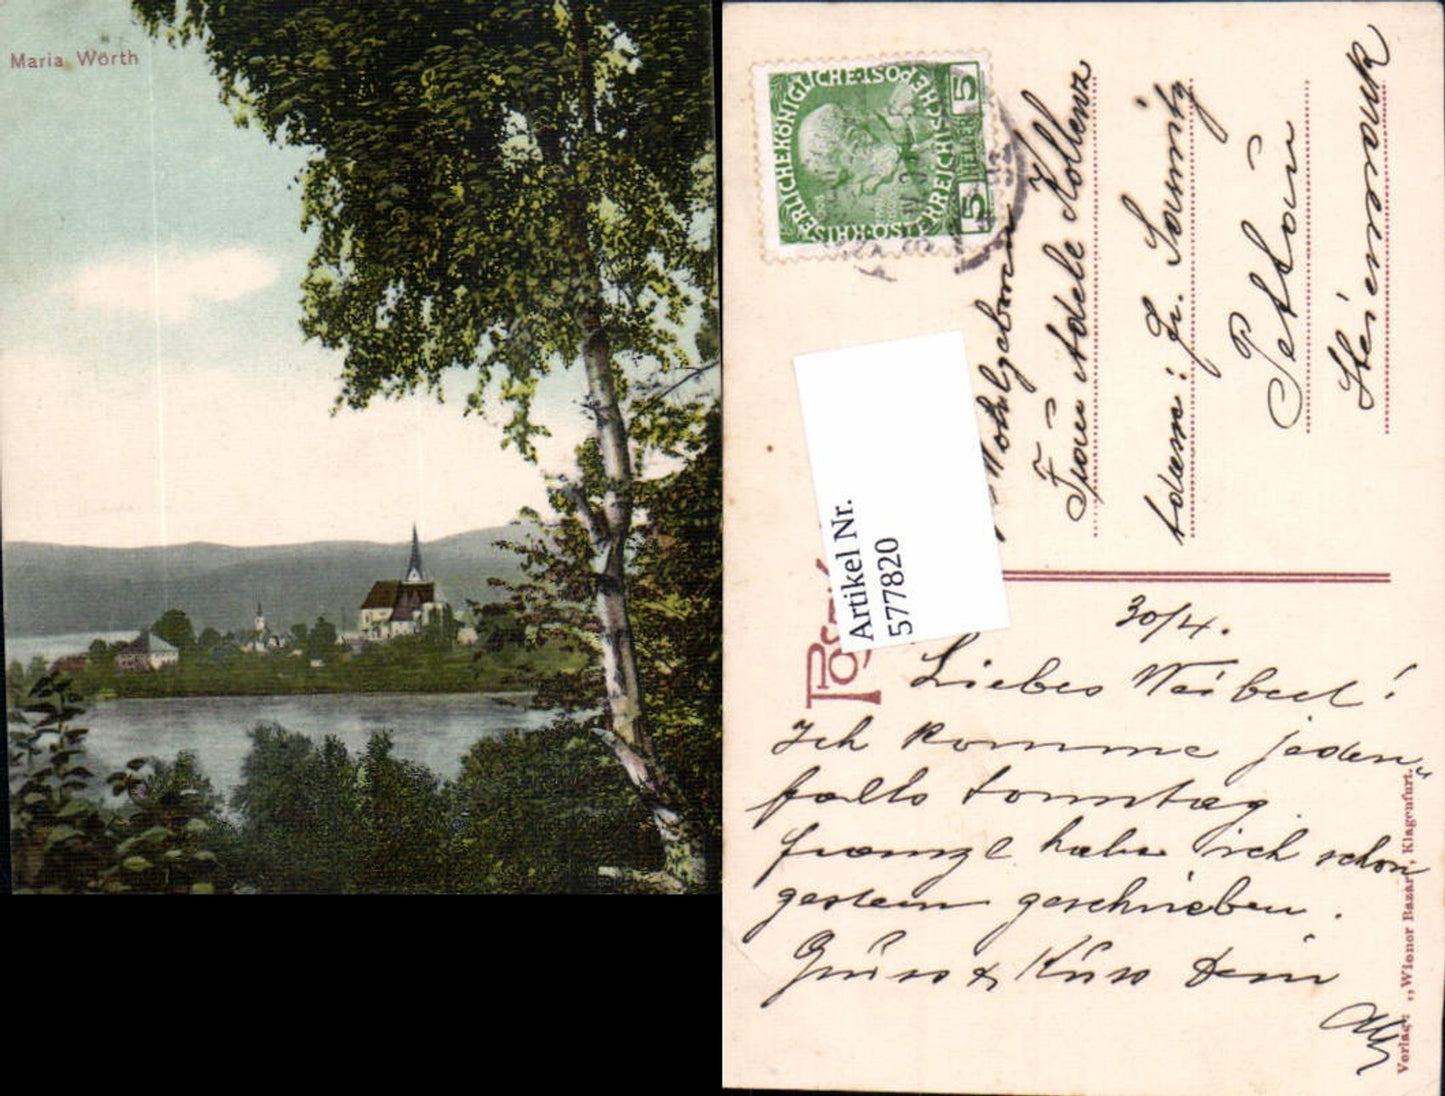 Maria Wörth
KAISERLICHE KÖNIGLICHE ÖSTERREICHISCHE POST
5 HELLER 5
Artikel Nr.
577820
Wohlgeboren
Frau Adele Kollenz
Pettau
Steiermark
30/4.
Liebes Weiberl!
Ich komme jeden„
falls Sonntag.
habe ich schon
gestern geschrieben.
Gruss & Kuss Dein
Verlag: „Wiener Bazar", Klagenfurt.